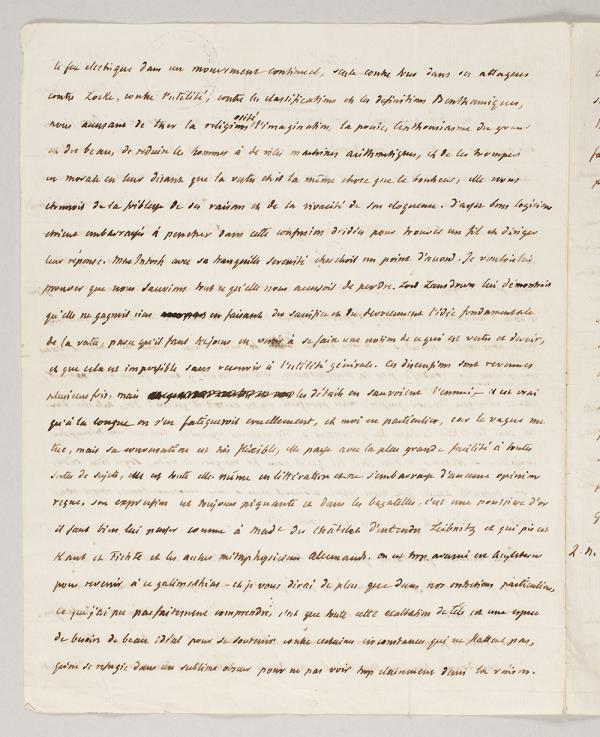 le feu electrique dans un mouvement continuel, seule contre tous dans ses attaques
contre Locke, contre l'utilité, contre les classifications et les definitions Benthamiques,
nous accusant de tuer la religiosité, l'imagination, la poesie, l'enthousiasme du grand
et du beau, de reduire les hommes à de viles machines arithmetiques, et de les tromper
en morale en leur disant que la vertu etoit la même chose que le bonheur, elle nous
etonnoit de la foiblesse de ses raisons et de la vivacité de son eloquence. d'assez bons logiciens
etoient embarrassés à pencher dans cette confusion d'idées pour trouver un fil et diriger
leur réponse. MacIntosh avec sa tranquille serenité cherchoit un point d'accord. Je voulois lui
prouver que nous sauvions tout ce qu'elle nous accusoit de perdre. Lord Lansdown lui démontroit
qu'elle ne gagnoit rien en faisant du sacrifice et du devouement l'idée fondamentale
de la vertu, parce qu'il faut toujours en venir à se faire une notion de ce qui est vertu et devoir,
et que cela est impossible sans recourir à l'utilité générale. Ces discussions sont revenues
plusieurs fois, mais les détails en sauvoient l'ennui, il est vrai
qu'à la longue on s'en fatigueroit cruellement, et moi en particulier, car le vague me
tue, mais sa conversation est très flexible, elle passe avec la plus grande facilité à toutes
sortes de sujets, elle est toute elle même en littérature et ne s'embarrasse d'aucune opinion
reçue, son expression est toujours piquante et dans les bagatelles c'est une poussiere d'or
il faut bien lui passer comme à Made du Châtelet d'entendre Leibnitz et qui pis est
Kant et Fichte et les autres métaphysiciens Allemands. on est trop avancé en Angleterre
pour revenir à ce galimathias - et je vous dirai de plus que dans nos entretiens particuliers,
ce que j'ai pu parfaitement comprendre, c'est que toute cette exaltation de tête est une espece
de besoin de beau ideal pour se soutenir contre certaines circonstances qui ne flattent pas,
qu'on se refugie dans un sublime obscur pour ne pas voir trop clairement dans la raison.
2. n.